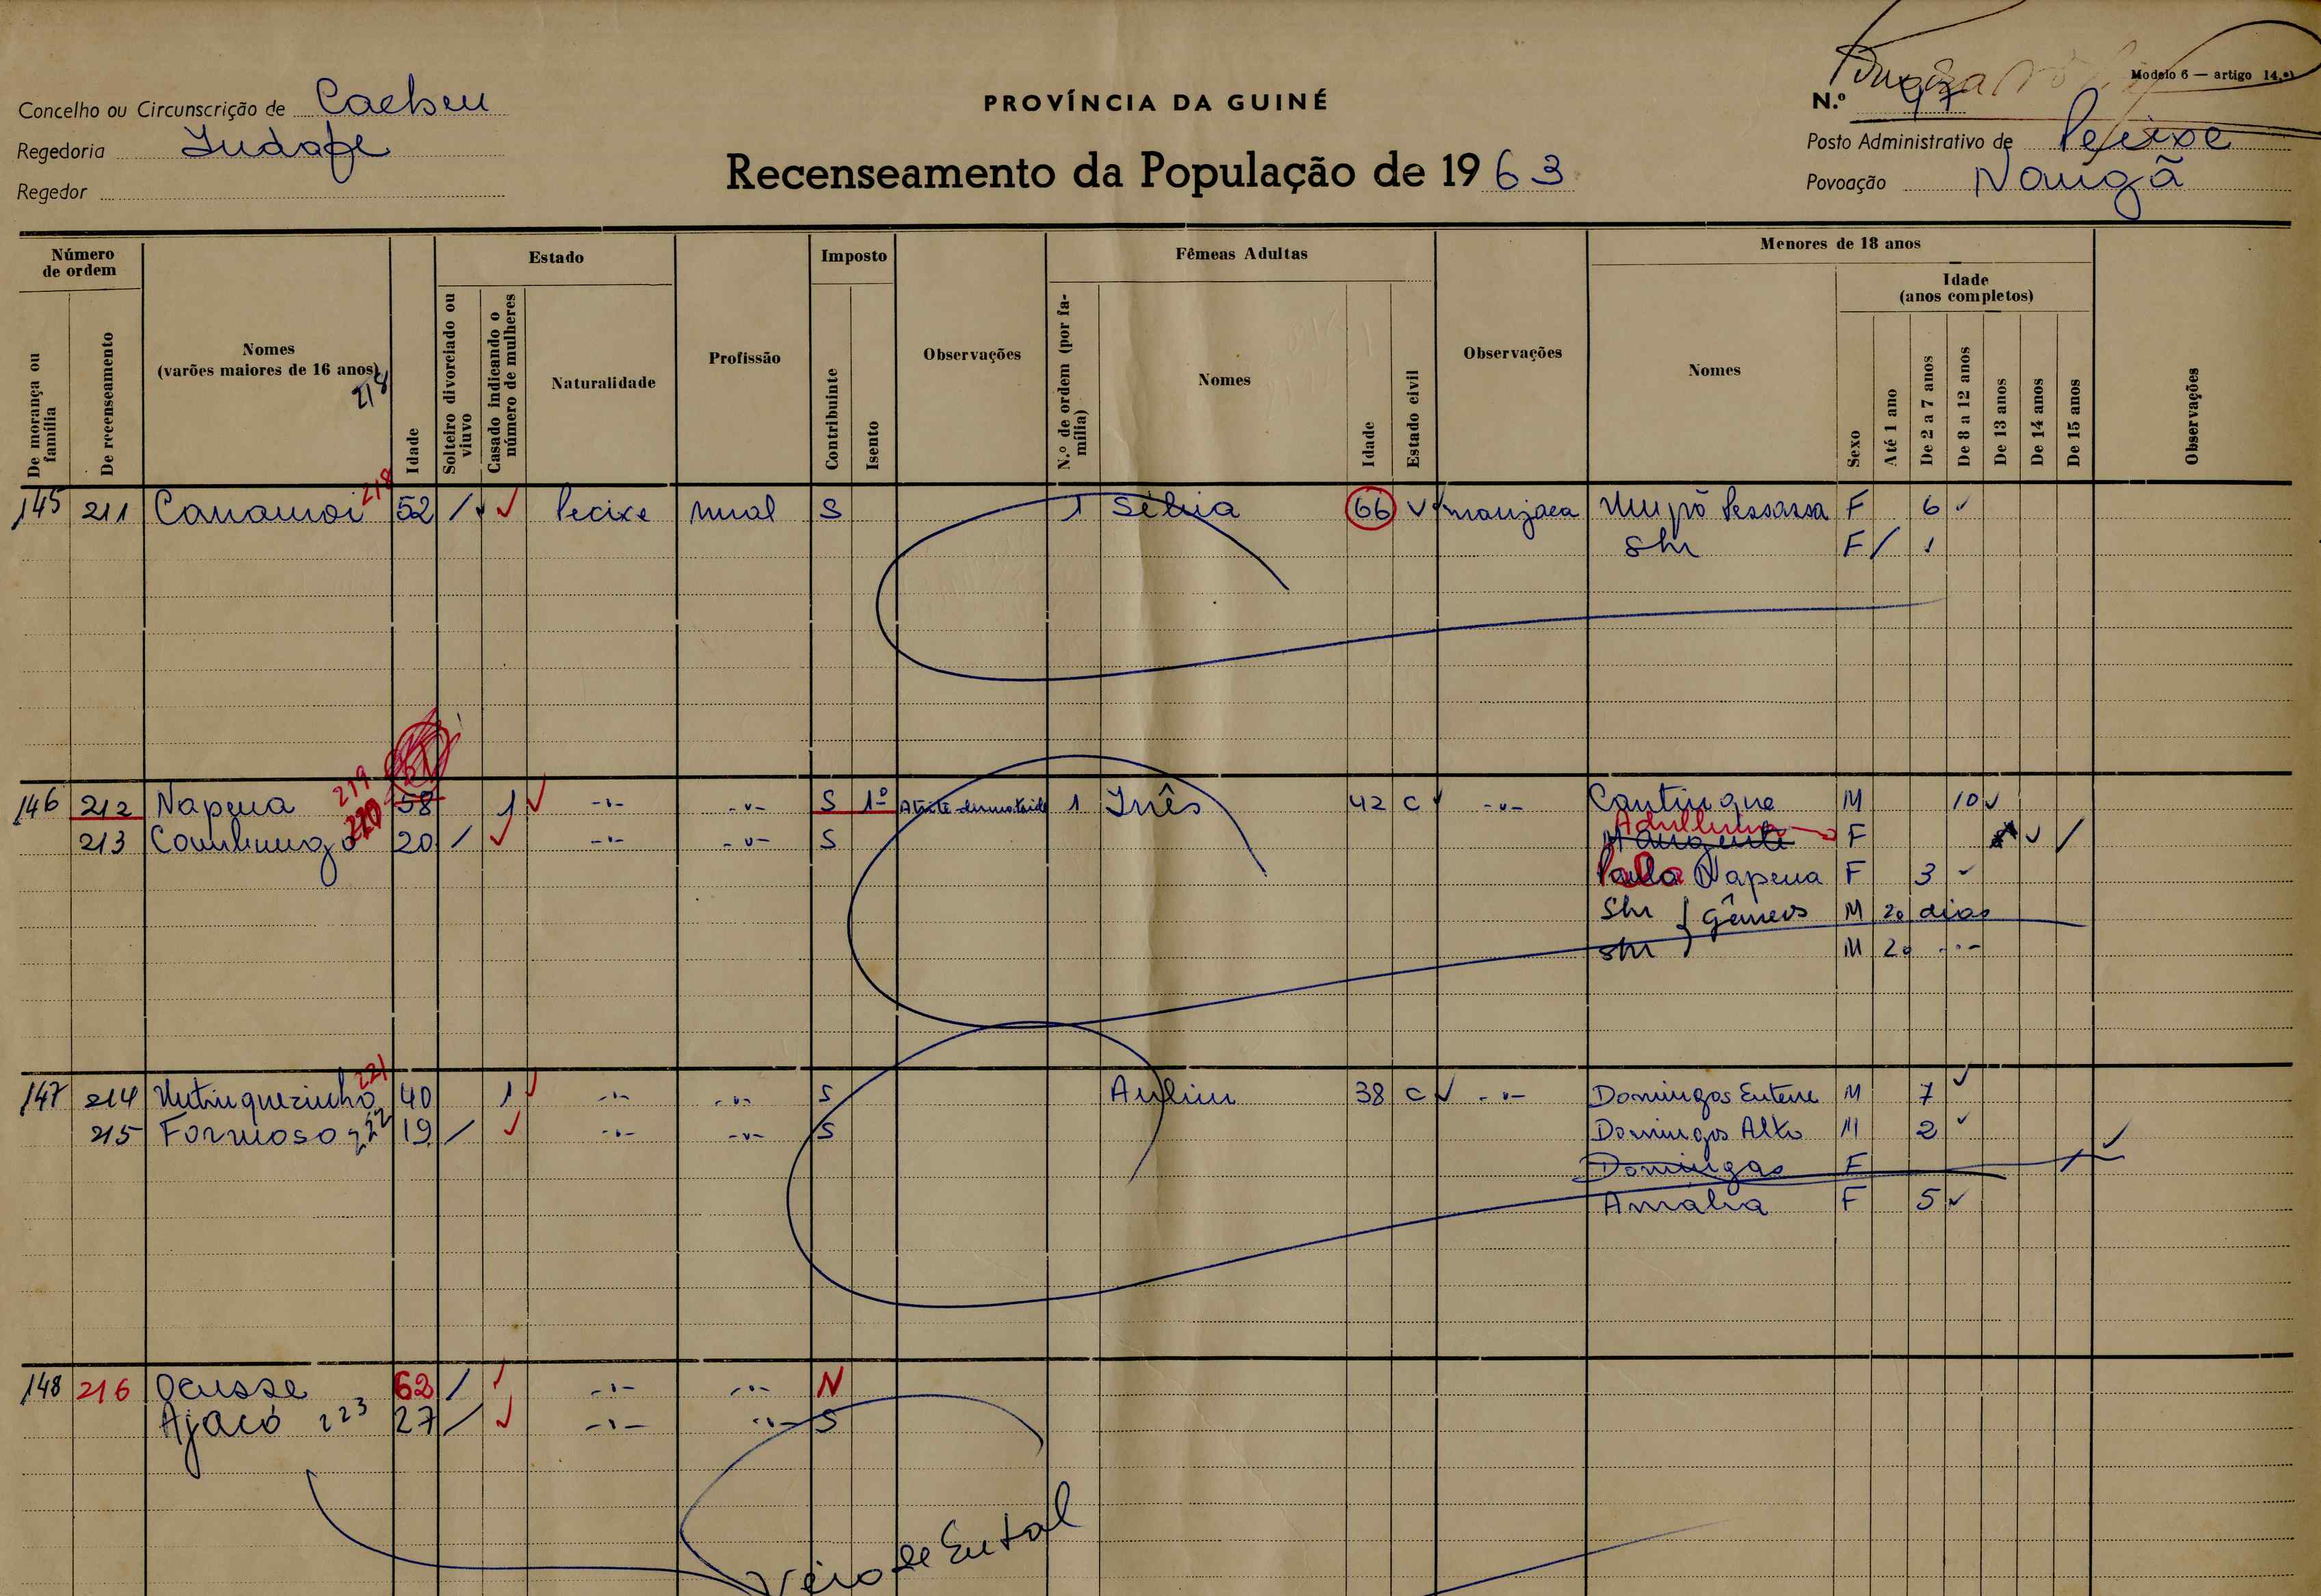 Modelo 6 — artigo 14.º)
Concelho ou Circunscrição de Cacheu
PROVÍNCIA DA GUINÉ
N.º 97
Regedoria Indafe
Recenseamento da População de 1963
Posto Administrativo de Pecixe
Regedor
Povoação Nougã
Número de ordem
Estado
Imposto
Fêmeas Adultas
Menores de 18 anos
Idade (anos completos)
De morança ou família
De recenseamento
Nomes (varões maiores de 16 anos)
218
Idade
Solteiro divorciado ou viuvo
Casado indicando o número de mulheres
Naturalidade
Profissão
Contribuinte
Isento
Observações
N.º de ordem (por família)
Nomes
Idade
Estado civil
Observações
Nomes
Sexo
Até 1 ano
De 2 a 7 anos
De 8 a 12 anos
De 13 anos
De 14 anos
De 15 anos
Observações
145 211 Canamoi 218 52 / ✓ Pecixe rural S 1 66 V manjaca F 6 ✓
Shr F / 1
146 212 Napena 219 58 1 ✓ -"- -"- S 1º 1 Inês 42 C ✓ -"- Cantingue M 10 ✓
213 220 20 / ✓ -"- -"- S F ✓ /
Napena F 3 ✓
Shr } Gêmeos M 20 dias
Shr M 20 -"-
147 214 221 40 1 ✓ -"- -"- S 38 C ✓ -"- Domingos M 7 ✓
215 Formoso 222 19 / ✓ -"- -"- S Domingos Alto M 2 ✓
Domingas F / ✓
Amalia F 5 ✓
148 216 Ocusse 62 / ✓ -"- -"- N
Ajacó 223 27 / ✓ -"- -"- S
Veio de Eutal